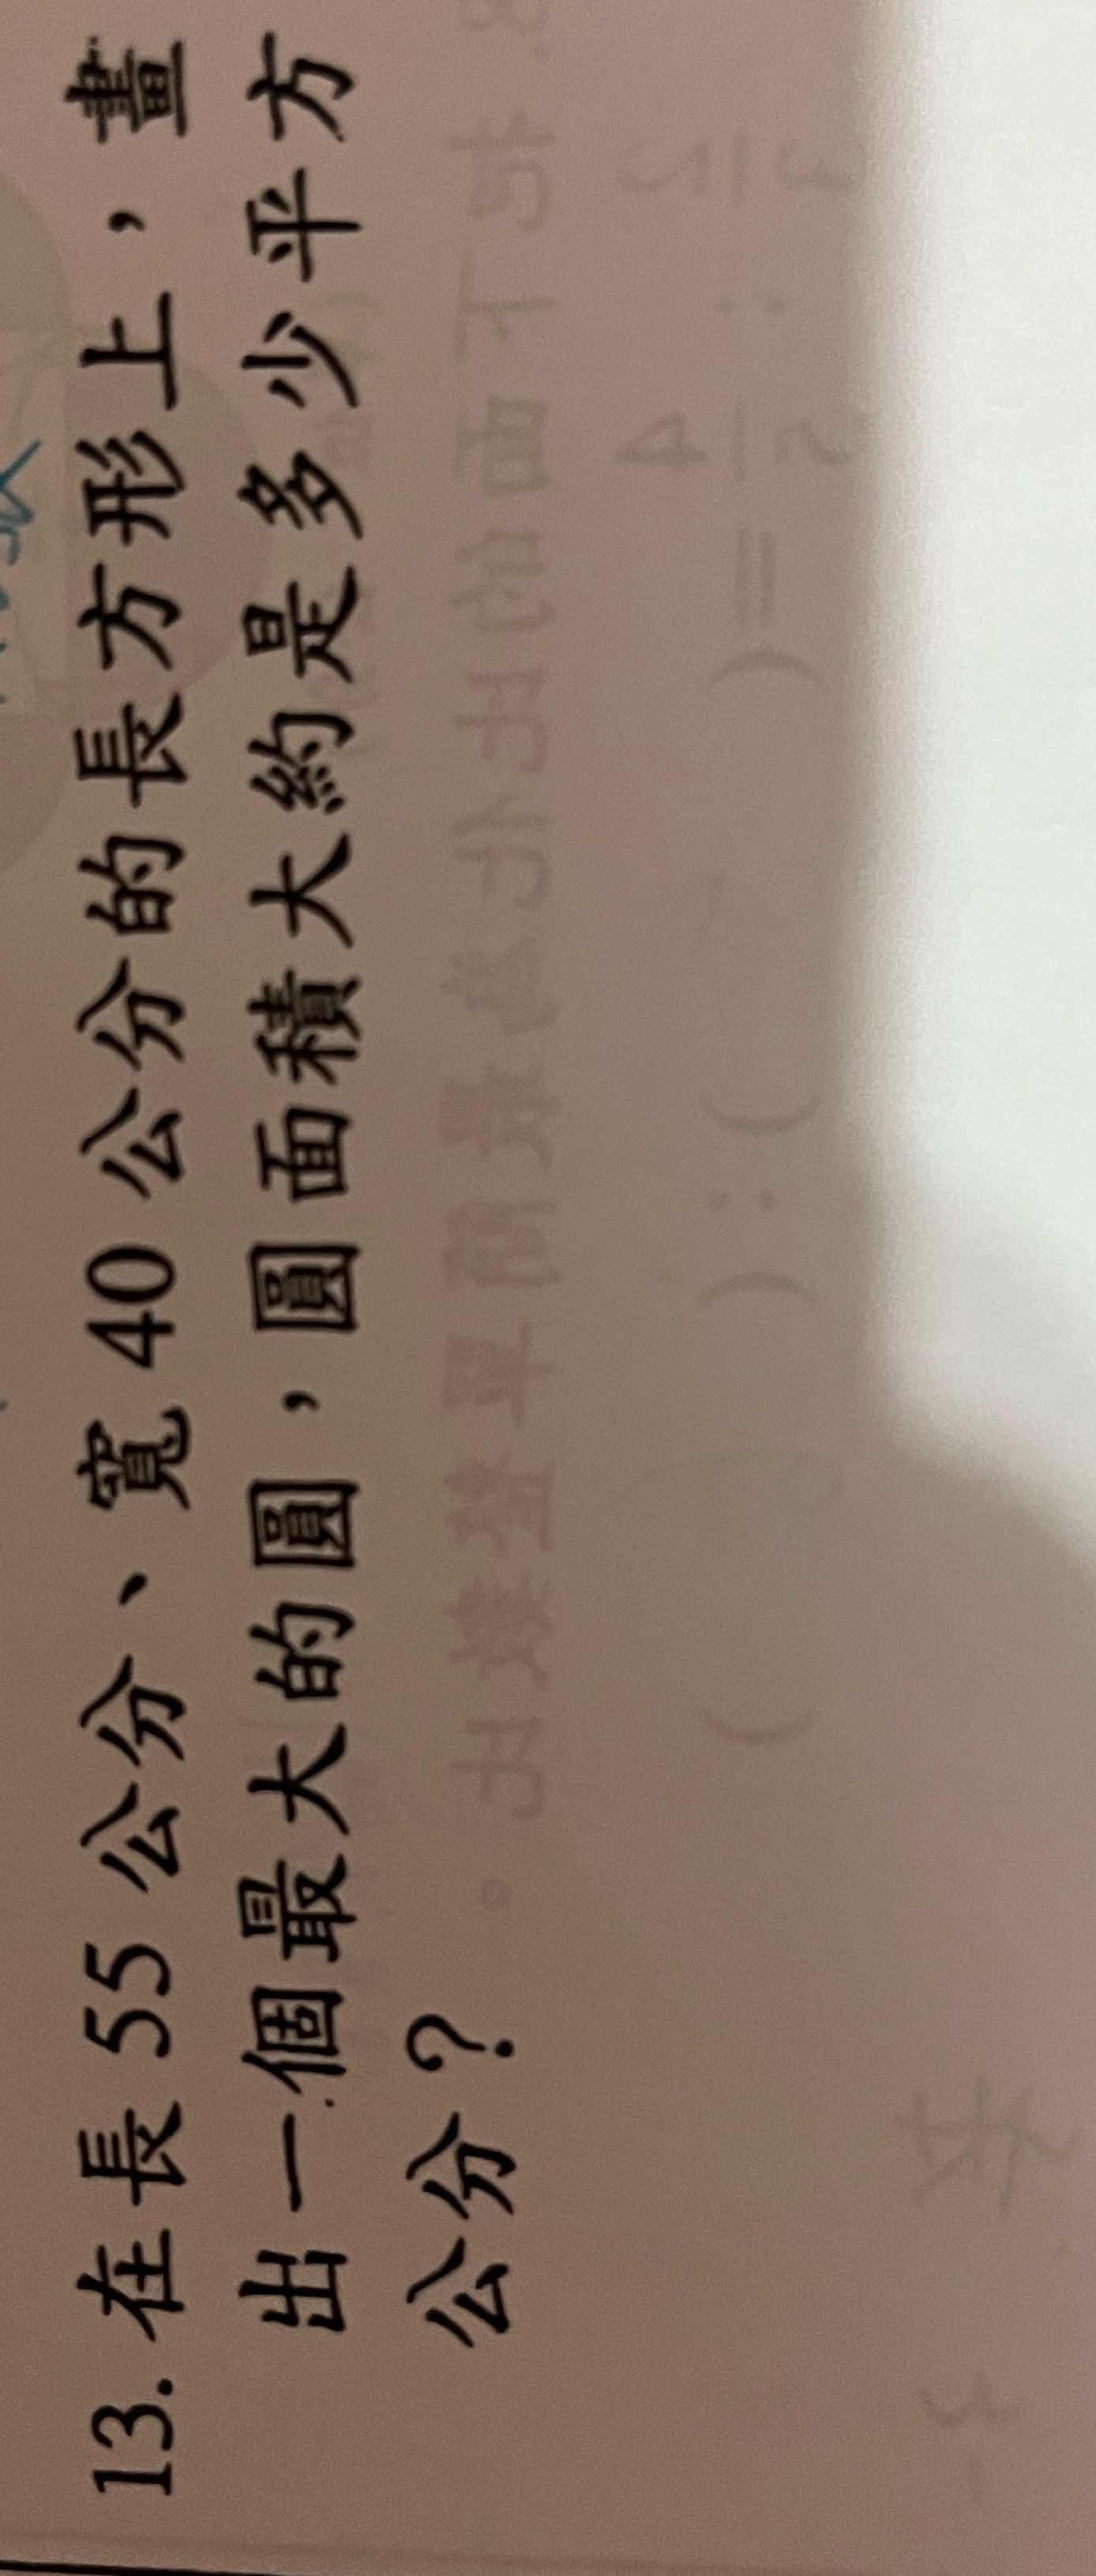 13. 在長 55 公分、寬 40 公分的長方形上，畫
出一個最大的圓，圓面積大約是多少平方
公分？